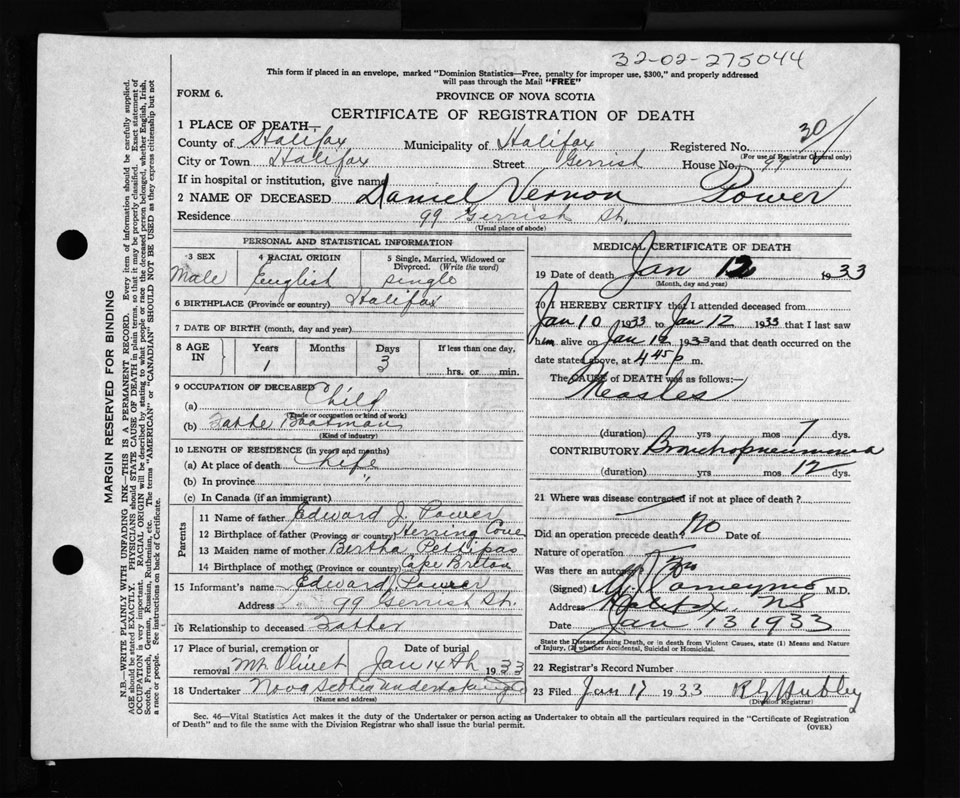 32-02-275044
This form if placed in an envelope, marked "Dominion Statistics—Free, penalty for improper use, $300," and properly addressed
will pass through the Mail "FREE"
FORM 6.
PROVINCE OF NOVA SCOTIA
CERTIFICATE OF REGISTRATION OF DEATH
1 PLACE OF DEATH—
County of Halifax Municipality of Halifax Registered No. 30
(For use of Registrar General only)
City or Town Halifax Street Gerrish House No.
If in hospital or institution, give name
2 NAME OF DECEASED Daniel Vernon Power
Residence 99 Gerrish St.
(Usual place of abode)
PERSONAL AND STATISTICAL INFORMATION
3 SEX 4 RACIAL ORIGIN 5 Single, Married, Widowed or Divorced. (Write the word)
Male English single
6 BIRTHPLACE (Province or country) Halifax
7 DATE OF BIRTH (month, day and year)
8 AGE IN Years Months Days If less than one day,
1 3 hrs. or min.
9 OCCUPATION OF DECEASED
(a) Child
(Trade or occupation or kind of work)
(b) Boatman
(Kind of industry)
10 LENGTH OF RESIDENCE (in years and months)
(a) At place of death Life
(b) In province "
(c) In Canada (if an immigrant)
Parents
11 Name of father Edward J. Power
12 Birthplace of father (Province or country) Herring Cove
13 Maiden name of mother Bertha Pettipas
14 Birthplace of mother (Province or country) Cape Breton
15 Informant's name Edward Power
Address 99 Gerrish St.
16 Relationship to deceased Father
17 Place of burial, cremation or removal Mt Olivet Date of burial Jan 14th 1933
18 Undertaker Nova Scotia Undertaking Co
(Name and address)
MEDICAL CERTIFICATE OF DEATH
19 Date of death Jan 12 1933
(Month, day and year)
20 I HEREBY CERTIFY that I attended deceased from
Jan 10 1933 to Jan 12 1933 that I last saw
him alive on Jan 12 1933 and that death occurred on the
date stated above, at 4 45 p. m.
The CAUSE of DEATH was as follows:—
Measles
(duration) yrs mos 7 dys.
CONTRIBUTORY Bronchopneumonia
(duration) yrs mos 12 dys.
21 Where was disease contracted if not at place of death?
Did an operation precede death? No Date of
Nature of operation
Was there an autopsy? No
(Signed) M.D.
Address Halifax, NS
Date Jan 13 1933
State the Disease causing Death, or in death from Violent Causes, state (1) Means and Nature
of Injury, (2) whether Accidental, Suicidal or Homicidal.
22 Registrar's Record Number
23 Filed Jan 17 1933 Hubley
(Division Registrar)
Sec. 46—Vital Statistics Act makes it the duty of the Undertaker or person acting as Undertaker to obtain all the particulars required in the "Certificate of Registration
of Death" and to file the same with the Division Registrar who shall issue the burial permit.
(OVER)
MARGIN RESERVED FOR BINDING
N.B.—WRITE PLAINLY WITH UNFADING INK—THIS IS A PERMANENT RECORD. Every item of information should be carefully supplied.
AGE should be stated EXACTLY. PHYSICIANS should STATE CAUSE OF DEATH in plain terms, so that it may be properly classified. Exact statement of
OCCUPATION is very important. RACIAL ORIGIN will be described by stating to what people or race the deceased person belonged, whether English, Irish,
Scotch, French, German, Russian, Ruthenian, etc. The terms "AMERICAN" or "CANADIAN" SHOULD NOT BE USED as they express citizenship but not
a race or people. See instructions on back of Certificate.